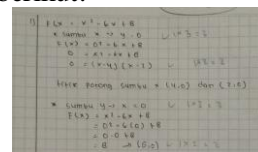 F(x) = x² - 6x + 8
* sumbu x → y = 0
F(x) = 0² - 6x + 8
0 = x² - 6x + 8
0 = (x-4)(x-2)
titik potong sumbu x (4,0) dan (2,0)
* sumbu y → x = 0
F(x) = x² - 6x + 8
= 0² - 6(0) + 8
= 0 - 0 + 8
= 8 →